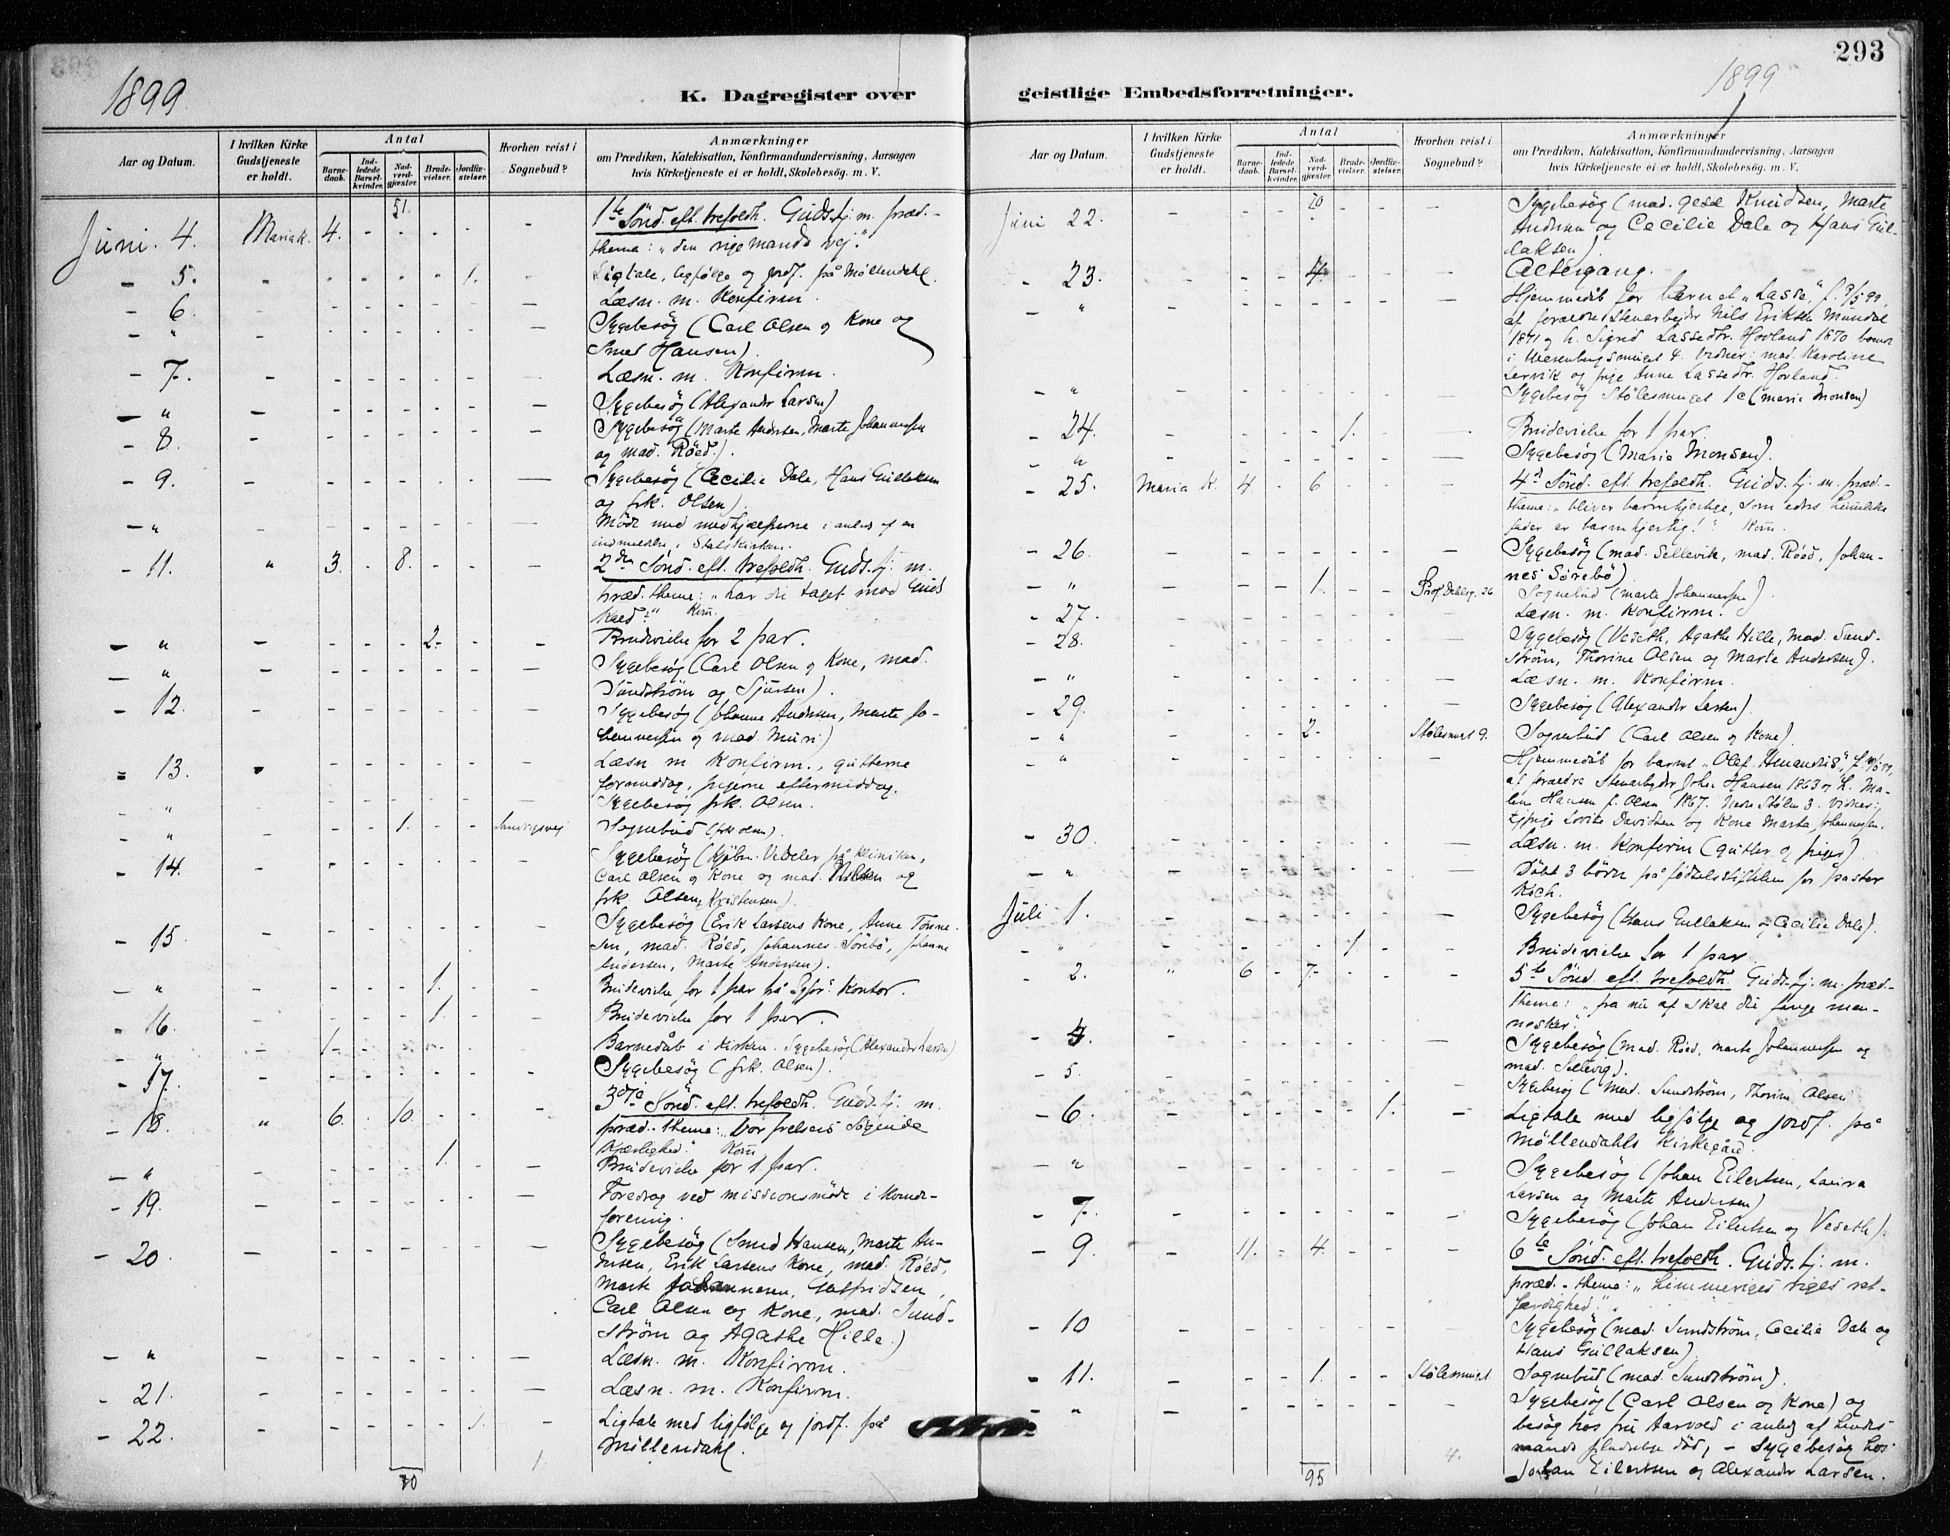 293
1899
1899
K. Dagregister over geistlige Embedsforretninger.
Aar og Datum.
I hvilken Kirke Gudstjeneste er holdt.
Antal
Barne-daab.
Ind-ledede Barsel-kvinder.
Nad-verd-gjæster.
Brude-vielser.
Jordfæ-stelser.
Hvorhen reist i Sognebud?
Anmærkninger
om Prædiken, Katekisation, Konfirmandundervisning, Aarsagen
hvis Kirketjeneste ei er holdt, Skolebesøg. m. V.
51.
Juni. 4. Mariak. 4. - - - - - 1te Sönd. eft. trefoldh. Guds.tj. m. præd.-
thema: "den rige mands vej."
- 5. - - - - - 1. - Ligtale, ligfølge og jordf. på Møllendahl.
- 6. Læsn. m. Konfirm.
- " Sygebesøg (Carl Olsen og Kone og
Smed Hansen).
- 7. Læsn. m. Konfirm.
- " Sygebesøg (Alexander Larsen)
- 8. Sygebesøg (Marte Andersen, Marte Johannessen
og mad. Röed.).
- 9. Sygebesøg (Cecilie Dale, Hans Gullaksen
og frk. Olsen).
- " Möde med medhjælperne i anledn. af en
indmelden i Statskirken.
- 11. " 3. - 8. - - - 2den Sönd. eft. trefoldh. Guds.tj. m.
præd. thema: "har du taget mod Guds
Kald?" Kom.
- " 2- Brudevielse for 2 par.
- " Sygebesøg (Carl Olsen og Kone, mad.
Sundström og Sjursen).
- 12. Sygebesøg (Johanne Andersen, Marte Jo-
hannessen og mad. Muri)
- 13. Læsn m. Konfirm., gutterne
formiddag, pigerne eftermiddag.
" Sygebesøg frk. Olsen.
" 1. Sandvigsvej Sognebud (frk Olsen).
- 14. Sygebesøg (Kjøbm. Vedeler på kliniken,
Carl Olsen og Kone og mad. og
frk. Olsen, Kristensen).
- 15. Sygebesøg (Erik Larsens Kone, Anne Tönne-
sen, mad. Röed, Johannes Sörebö, Johanne
Andersen, Marte Andersen).
- " 1. Brudevielse for 1 par på Kontor.
- 16. 1. Brudevielse for 1 par.
" 1- Barnedåb i kirken. Sygebesøg (Alexander Larsen)
- 17. Sygebesøg (frk. Olsen).
- 18. " 6. - 10. - - - 3die Sönd. eft. trefoldh. Guds.tj. m.
præd.- thema: "Vor frelsers søgende
Kjærlighed." Kom
- " 1. Brudevielse for 1 par.
- 19. Foredrag ved missionsmöde i Kvinde-
forening.
- 20. Sygebesøg (Smed Hansen, Marte An-
dersen, Erik Larsens Kone, mad. Röed,
Marte Johannesen, Gutfridsen,
Carl Olsen og Kone, mad. Sund-
ström og Agathe Hille.)
- " Læsn. m. Konfirm.
- 21. Læsn. m. Konfirm.
- 22. 1. Ligtale med ligfølge og jordf. på
Møllendahl.
70
1.
Aar og Datum.
I hvilken Kirke Gudstjeneste er holdt.
Antal
Barne-daab.
Ind-ledede Barsel-kvinder.
Nad-verd-gjæster.
Brude-vielser.
Jordfæ-stelser.
Hvorhen reist i Sognebud?
Anmærkninger
om Prædiken, Katekisation, Konfirmandundervisning, Aarsagen
hvis Kirketjeneste ei er holdt, Skolebesøg. m. V.
70
Juni 22. Sygebesøg (mad. Gese Knudsen, Marte
Andersen og Cecilie Dale og Hans Gul-
laksen).
- 23. 4. Altergang.
- " Hjemmedåb for barnet "Lasse,"
af forældre Stenarbejder Nils Eriksen Mundal
1871 og h. Sigrid Lassedtr. Hovland 1870 boende
i Wesenbergsmuget 4. Vidner: mad. Karoline
Lervik og pige Anne Lassedtr. Hovland.
" Sygebesøg Stölesmuget 1c (Marie Monsen)
- 24. 1. Brudevielse for 1 par
- " Sygebesøg (Marie Monsen).
- 25. Maria K. 4 - 6 - - - 4d Sönd. eft. trefoldh. Guds.tj. m. præd.-
thema: "bliver barmhjertige, som eders himmelske
fader er barmhjertig!" Kom
- 26. Sygebesøg (mad. Sellevik, mad. Röed, Johan-
nes Sörebö)
- " 1. 26 Sognebud (Marte Johannessen)
- 27. Læsn. m. Konfirm.
- 28. Sygebesøg (Veseth, Agathe Hille, mad. Sund-
ström, Thorine Olsen og Marte Andersen).
- " Læsn. m. Konfirm.
- 29. Sygebesøg (Alexander Larsen).
- " 2- Stölesmuget 9. Sognebud (Carl Olsen og Kone).
- " Hjemmedåb for barnet "Olef
af forældre Stenarbejder Johan Hansen 1863 og h. Ma-
lene Hansen f. Olsen 1867. Nedre Stölen 3. Vidner:
pige Lovise Davidsen og Kone Marta Johannessen.
- 30. Læsn. m. Konfirm (gutter og piger).
- " Döbt 3 börn på fødselsstiftelsen for pastor
Koch.
Juli 1. Sygebesøg (Hans Gullaksen og Cecilie Dale).
- " 1 Brudevielse for 1 par
- 2. " 6 - 7- - - - 5te Sönd. eft. trefoldh. Guds.tj. m. præd.-
thema: "fra nu af skal du fange men-
nesker."
- 4. Sygebesøg (mad. Röed, Marte Johannessen og
mad. Sellevig).
- 5. Sygebesøg (mad. Sundström, Thorine Olsen
- 6. 1. Ligtale med ligfølge og jordf. på
Møllendahls Kirkegård.
- " Sygebesøg (Johan Eilertsen, Laura
Larsen og Marte Andersen)
- 7. Sygebesøg (Johan Eilertsen og Veseth).
- 9 - 11. - 4. - - - 6te Sönd. eft. trefoldh. Guds.tj. m.
præd.- thema: "himmeriges riges ret-
færdighed."
- 10 Sygebesøg (mad. Sundström, Cecilie Dale og
Hans Gullaksen)
- 11. 1. Stölesmuget Sognebud (mad. Sundström).
- " Sygebesøg (Carl Olsen og Kone) og
besøg hos fru Aarvold i anledn. af
mands død, - sygebesøg hos
Johan Eilertsen og Alexander Larsen.
95
4.